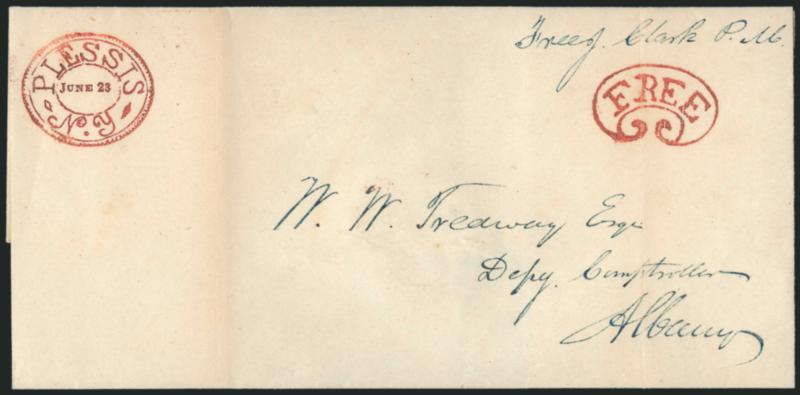 PLESSIS
JUNE 23
N.Y
Free J. Clark P.M.
FREE
W. W. Tredway Esqr
Depy. Comptroller
Albany